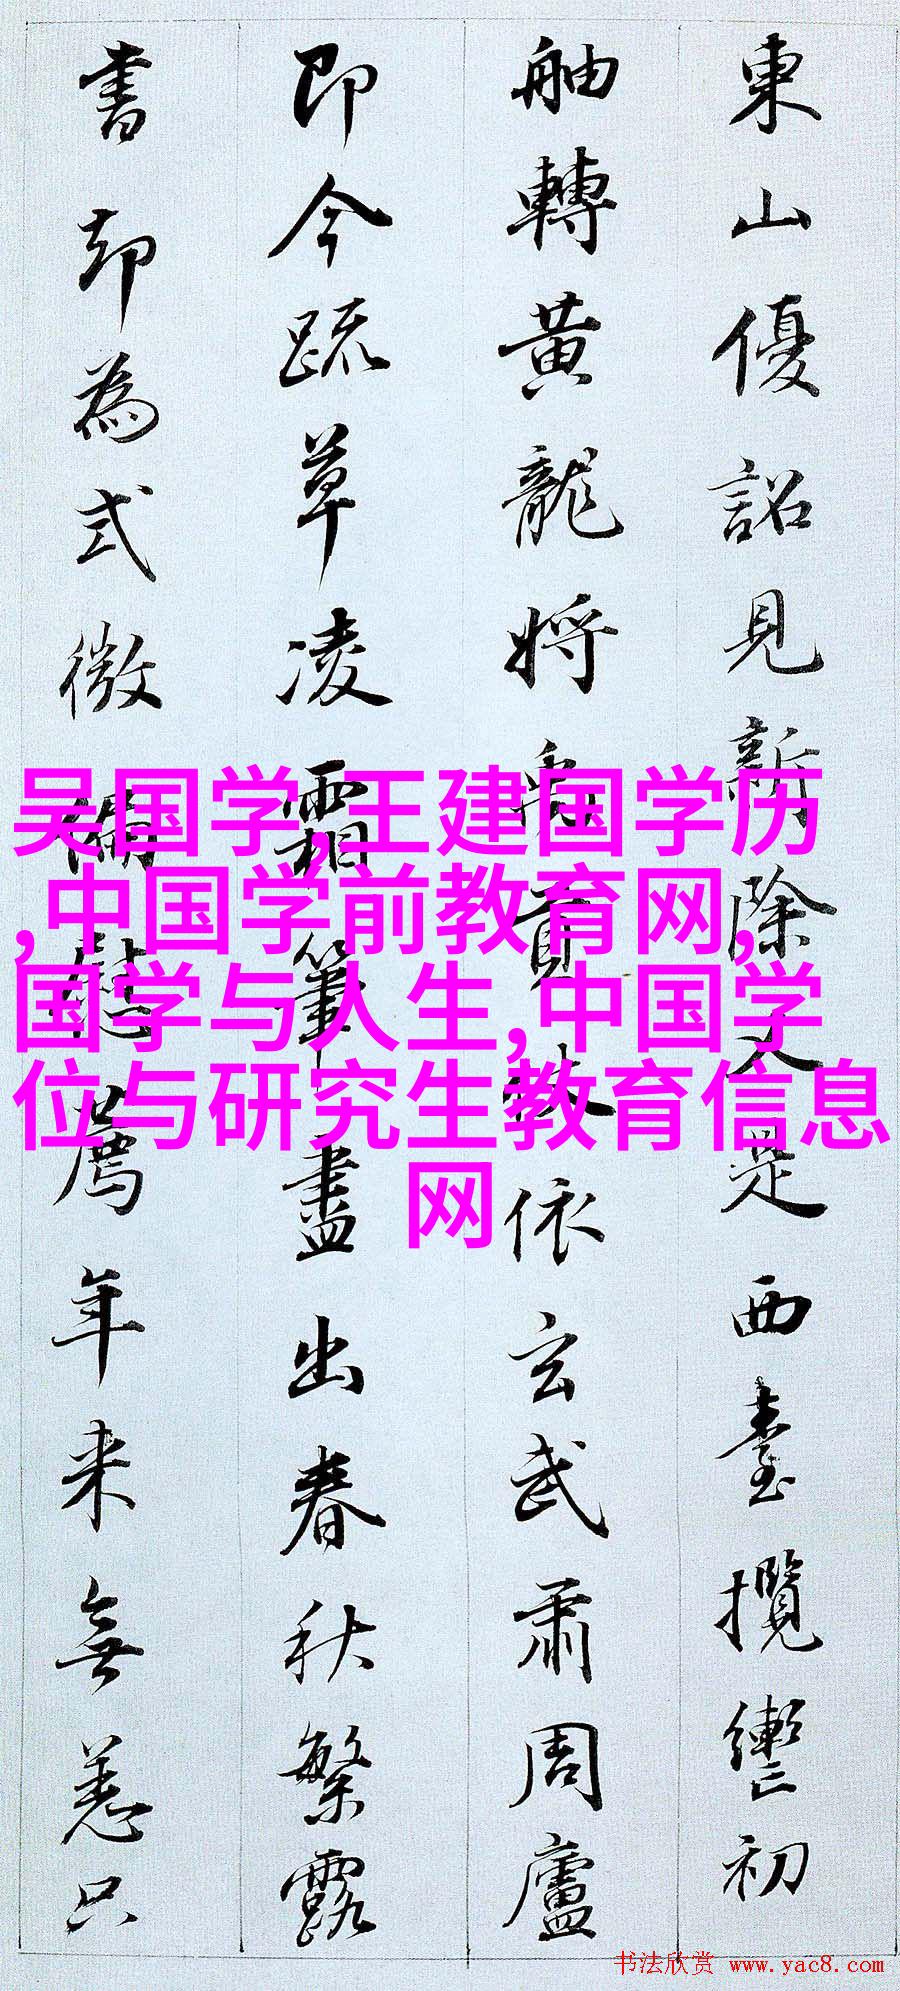 東山優詔見新除又是西臺攬轡初
舳轉黃龍將禹貢枝依玄武肅周廬
即今疏草凌霜筆盡出春秋繁露
書却為式微偏慰薦年来無恙只
吴国学,王建国学历
,中国学前教育网,
国学与人生,中国学
位与研究生教育信息
网
书法欣赏 www.yac8.com